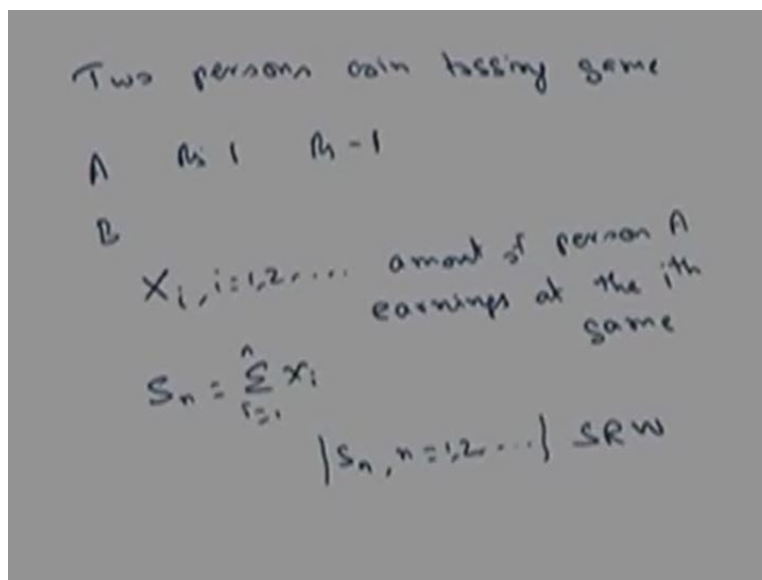 Two persons coin tossing game
A Rs 1 Rs -1
B
Xi, i=1,2,... amount of person A
earnings at the ith
game
Sn = Σ Xi
n
i=1
{Sn, n=1,2...} SRW